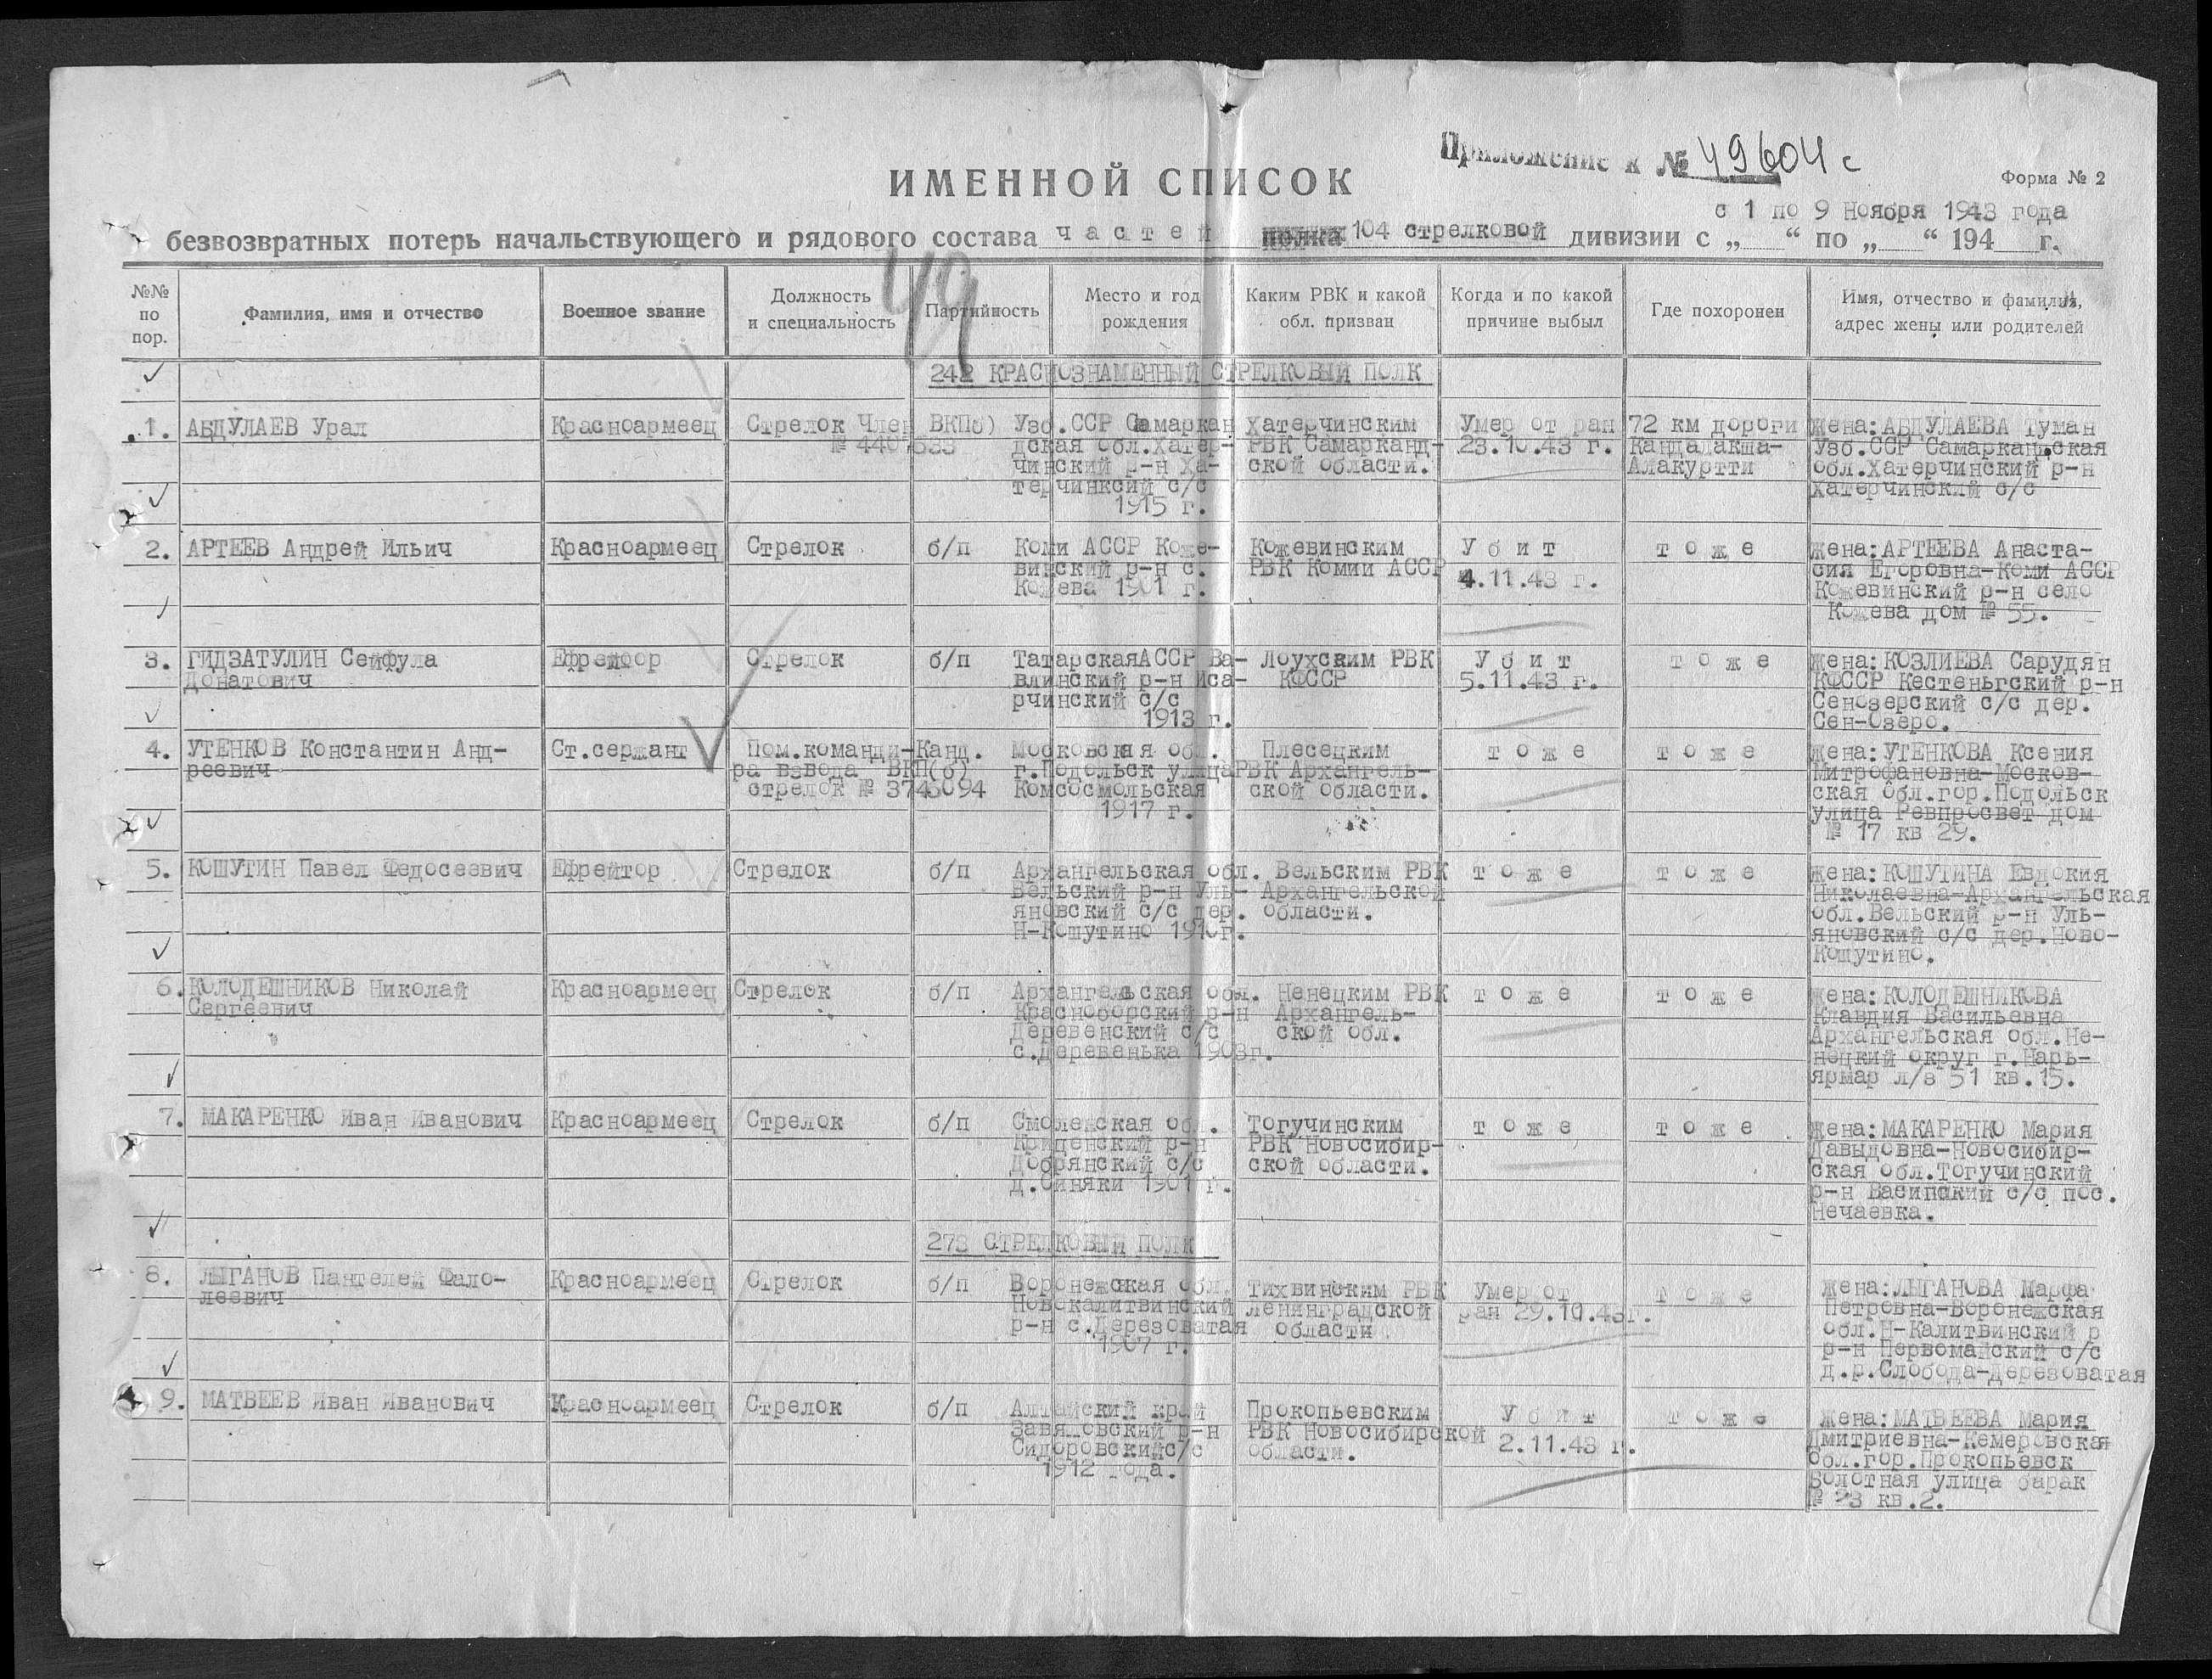 Приложение к № 49604с
ИМЕННОЙ СПИСОК
Форма № 2
с 1 по 9 Ноября 1943 года
безвозвратных потерь начальствующего и рядового состава частей полка 104 стрелковой дивизии с „ “ по „ “ 194 г.
49
№№ по пор. Фамилия, имя и отчество Военное звание Должность и специальность Партийность Место и год рождения Каким РВК и какой обл. призван Когда и по какой причине выбыл Где похоронен Имя, отчество и фамилия, адрес жены или родителей
242 КРАСНОЗНАМЕННЫЙ СТРЕЛКОВЫЙ ПОЛК
1. АБДУЛАЕВ Урал Красноармеец Стрелок Член ВКПб) Узб.ССР Самаркан Хатерчинским Умер от ран 72 км дороги Жена:АБДУЛАЕВА Туман
№ 4407533 дская обл.Хатер- РВК Самарканд- 23.10.43 г. Кандалакша- Узб.ССР Самаркандская
чинский р-н Ха- ской области. Алакуртти обл.Хатерчинский р-н
терчинксий с/с Хатерчинский с/с
1915 г.
2. АРТЕЕВ Андрей Ильич Красноармеец Стрелок б/п Коми АССР Коже- Кожевинским Убит тоже Жена:АРТЕЕВА Анаста-
винский р-н с. РВК Комии АССР 4.11.43 г. сия Егоровна-Коми АССР
Кожева 1901 г. Кожевинский р-н село
Кожева дом № 55.
3. ГИДЗАТУЛИН Сейфула Ефрейтор Стрелок б/п ТатарскаяАССР Ба- Лоухским РВК Убит тоже Жена:КОЗЛИЕВА Сарудян
Донатович влинский р-н Иса- КФССР 5.11.43 г. КФССР Кестеньгский р-н
рчинский с/с Сенозерский с/с дер.
1913 г. Сен-Озеро.
4. УТЕНКОВ Константин Анд- Ст.сержант Пом.команди- Канд. Московская обл. Плесецким тоже тоже Жена:УТЕНКОВА Ксения
реевич ра взвода ВКП(б) г.Подольск улица РВК Архангель- Митрофановна-Москов-
стрелок № 3743094 Комсосмольская ской области. ская обл.гор.Подольск
1917 г. улица Ревпросвет дом
№ 17 кв 29.
5. КОШУТИН Павел Федосеевич Ефрейтор Стрелок б/п Архангельская обл. Вельским РВК тоже тоже Жена:КОШУТИНА Евдокия
Вельский р-н Уль- Архангельской Николаевна-Архангельская
яновский с/с дер. области. обл.Вельский р-н Уль-
Н-Кошутино яновский с/с дер.Ново-
Кошутино.
6. КОЛОДЕШНИКОВ Николай Красноармеец Стрелок б/п Архангельская обл. Ненецким РВК тоже тоже Жена:КОЛОДЕШНИКОВА
Сергеевич Красноборский р-н Архангель- Клавдия Васильевна
Деревенский с/с ской обл. Архангельская обл.Не-
с.Деревенька 1903г. нецкий округ г.Нарь-
ярмар л/в 51 кв.15.
7. МАКАРЕНКО Иван Иванович Красноармеец Стрелок б/п Смоленская обл. Тогучинским тоже тоже Жена:МАКАРЕНКО Мария
р-н РВК Новосибир- Давыдовна-Новосибир-
Добрянский с/с ской области. ская обл.Тогучинский
д.Синяки 1901 г. р-н с/с пос.
Нечаевка.
273 СТРЕЛКОВЫЙ ПОЛК
8. ЛЫГАНОВ Пантелей Фало- Красноармеец Стрелок б/п Воронежская обл. Тихвинским РВК Умер от тоже Жена:ЛЫГАНОВА Марфа
леевич Новокалитвинский Ленинградской ран 29.10.43г. Петровна-Воронежская
р-н с.Дерезоватая области обл.Н-Калитвинский р
1907 г. р-н Первомайский с/с
д.р.Слобода-Дерезоватая
9. МАТВЕЕВ Иван Иванович Красноармеец Стрелок б/п Алтайский край Прокопьевским Убит тоже Жена:МАТВЕЕВА Мария
Завяловский р-н РВК Новосибирской 2.11.43 г. Дмитриевна-Кемеровская
Сидоровскийс/с области. обл.гор.Прокопьевск
1912 года. Болотная улица барак
№ 23 кв.2.